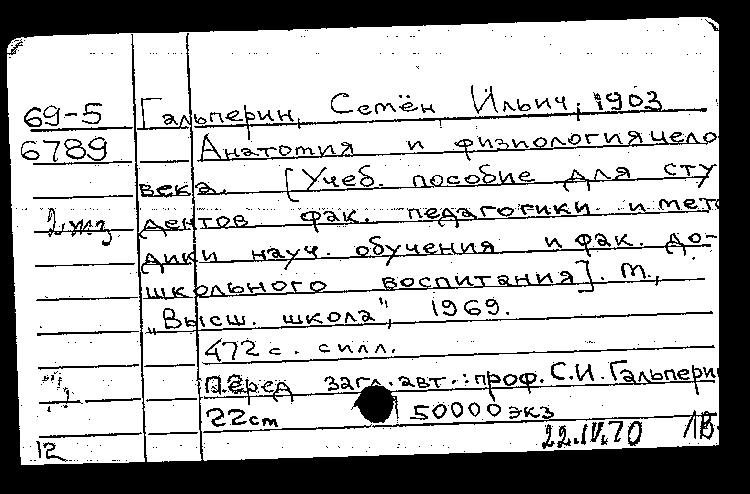 69-5 Гальперин, Семён Ильич, 1903
6789 Анатомия и физиология чело-
века. [Учеб. пособие для сту
дентов фак. педагогики и мето
дики науч. обучения и фак. до-
школьного воспитания]. М.,
„Высш. школа", 1969.
472 с. силл.
Перед загл. авт.: проф. С.И. Гальперин
22 см 50000 экз
22.IV.70 1В
12